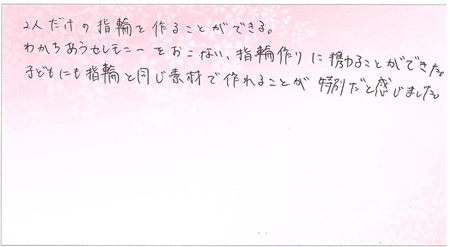 2人だけの指輪を作ることができる。
わかちあうセレモニーをおこない、指輪作りに携わることができた。
子どもにも指輪と同じ素材で作れることが特別だと感じました。